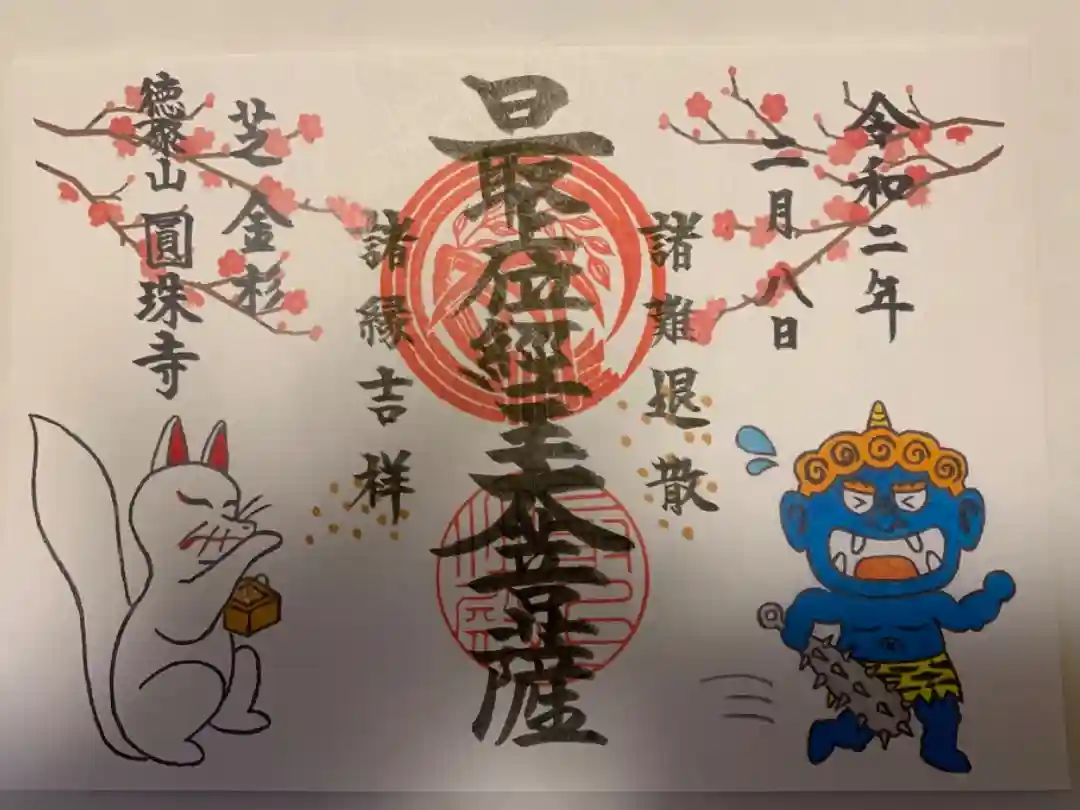 令和二年
二月八日
諸難退散
最上位經王大菩薩
諸縁吉祥
芝金杉
徳聚山圓珠寺